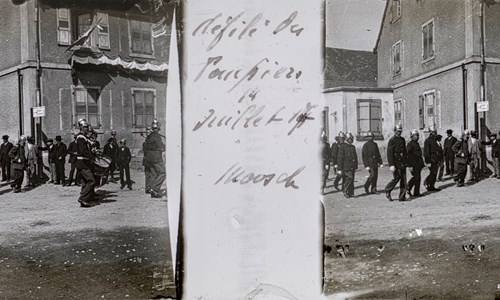 défilé des
Pompiers
14
Juillet 17
à
Moosch